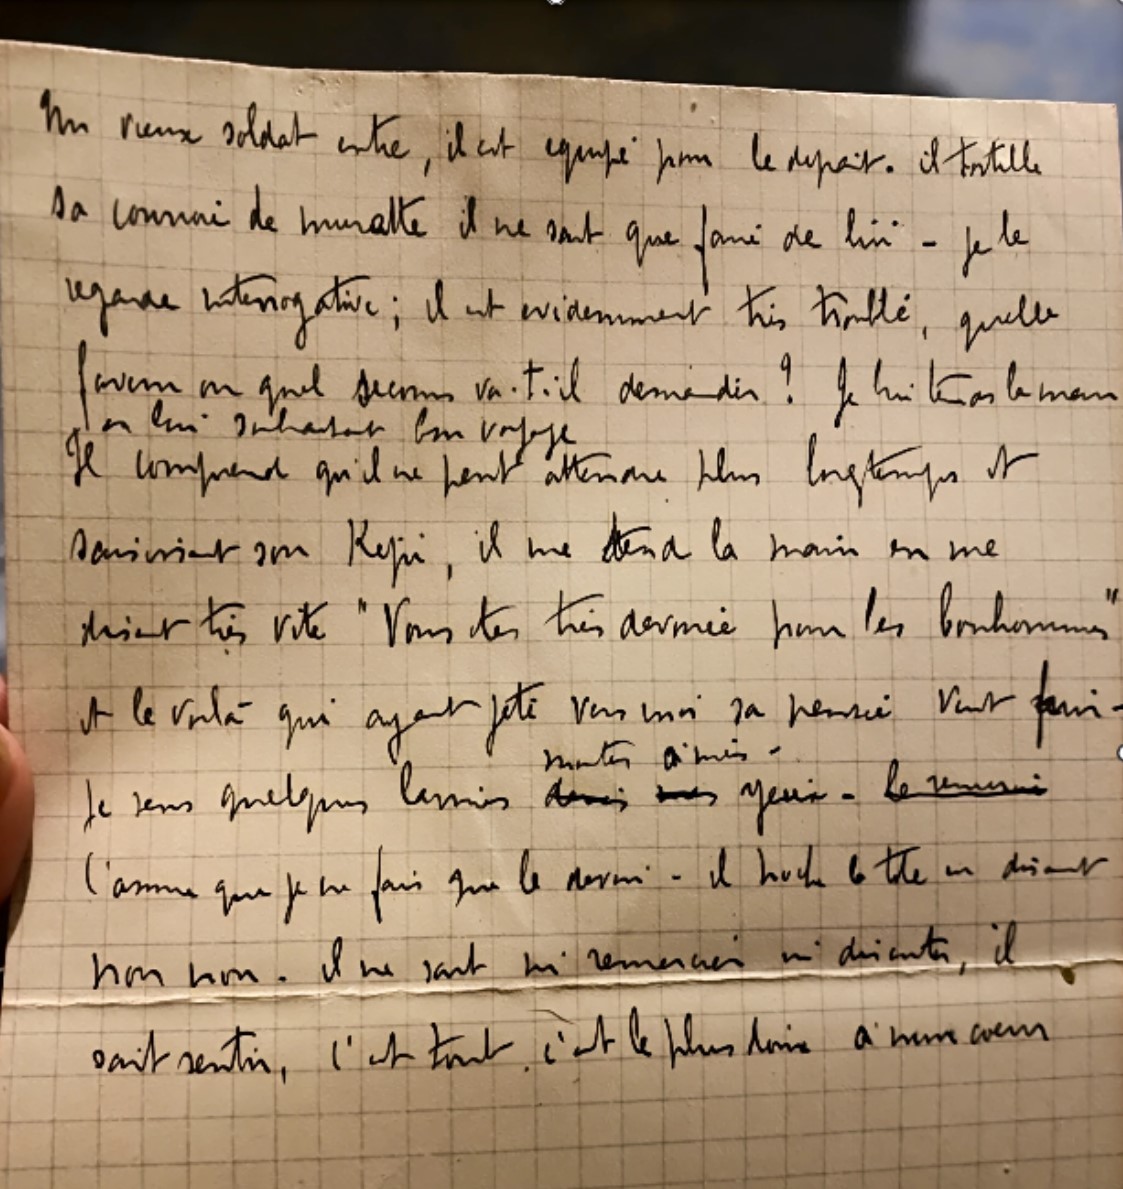 Un vieux soldat entre, il est equipé pour le depart. il tortille
sa courroie de musette il ne sait que faire de lui - je le
regarde interrogative ; il est evidemment très troublé, quelle
faveur ou quel secours va-t-il demander ? Je lui tends la main
en lui souhaitant bon voyage
Il comprend qu'il ne peut attendre plus longtemps et
saisissant son Kepi, il me tend la main en me
disant très vite "Vous etes très devouée pour les bonhommes"
et le voilà qui ayant jeté vers moi sa pensée veut fuir -
monter à mes -
Je sens quelques larmes dans mes yeux - le remercie
l'assure que je ne fais que le devoir - il hoche la tete en disant
non non - il ne sait ni remercier ni discuter, il
sait sentir, c'est tout. c'est le plus doux à mon coeur